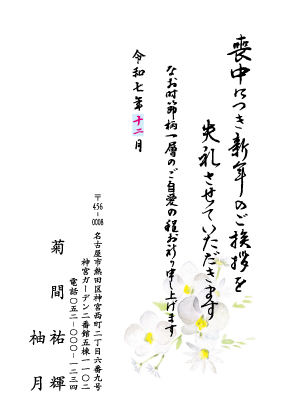 喪中につき新年のご挨拶を
失礼させていただきます
なお時節柄一層のご自愛の程お祈り申し上げます
令和七年十二月
〒456-0008
名古屋市熱田区神宮西町二丁目六番九号
神宮ガーデン二番館五棟一一〇二
電話〇五二-〇〇〇-一二三四
菊間祐輝
柚月